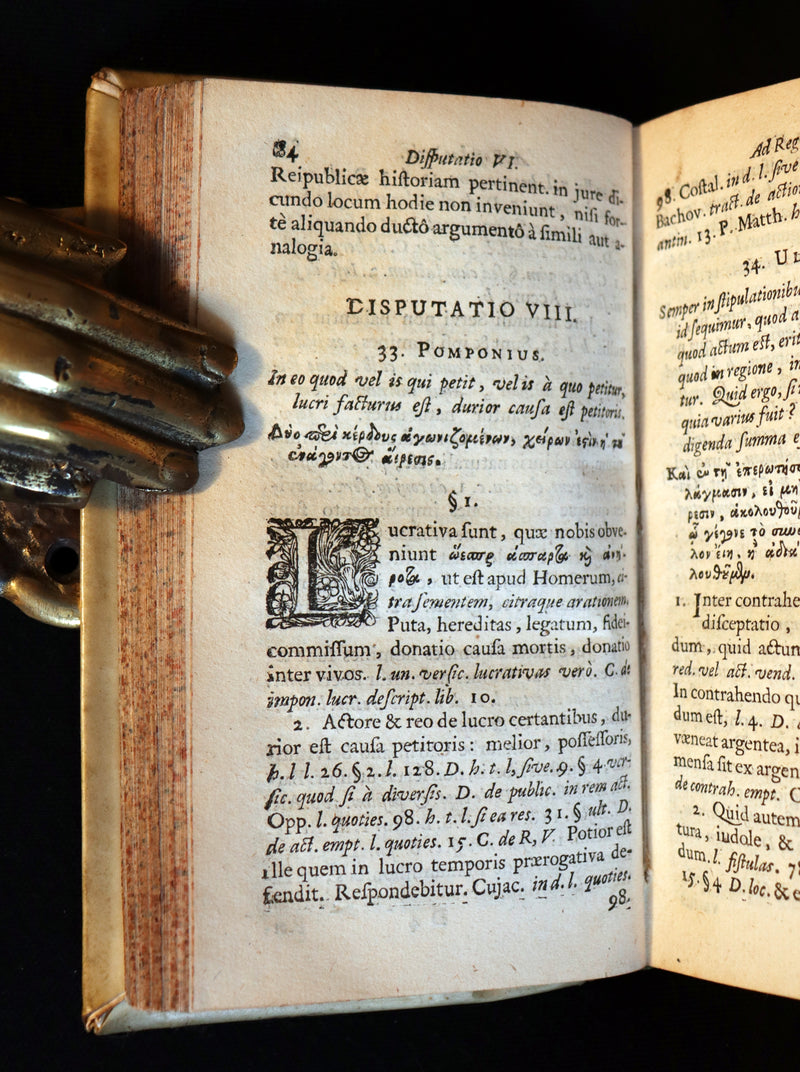 84 Disputatio VI.
Reipublicæ historiam pertinent. in jure di-
cundo locum hodie non inveniunt, nisi for-
tè aliquando ductô argumentô à simili aut a-
nalogia.
DISPUTATIO VIII.
33. POMPONIUS.
In eo quod vel is qui petit, vel is à quo petitur,
lucri facturus est, durior causa est petitoris.
Δύο περὶ κέρδους ἀγωνιζομένων, χείρων ἐςὶν ἡ τῦ
ἐνάγοντος αἵρεσις.
§ 1.
Lucrativa sunt, quæ nobis obve-
niunt
, ut est apud Homerum, a-
tra sementem, citraque arationem.
Puta, hereditas, legatum, fidei-
commissum, donatio causa mortis, donatio
inter vivos. l. un. versic. lucrativas verò. C. de
impon. lucr. descript. lib. 10.
2. Actore & reo de lucro certantibus, du-
rior est causa petitoris: melior, possessoris,
h. l l. 26. § 2. l. 128. D. h. t. l, sive. 9. § 4 ver-
sic. quod si à diversis. D. de public. in rem act.
Opp. l. quoties. 98. h. t. l. si ea res. 31. § ult. D.
de act. empt. l. quoties. 15. C. de R, V. Potior est
ille quem in lucro temporis prærogativa de-
fendit. Respondebitur. Cujac. in d. l. quoties.
98.
Ad Reg
98. Costal. in d. l. sive
Bachov. tract. de actio
antin. 13. P. Matth. h
34. UL
Semper in stipulationibu
id sequimur, quod a
quod actum est, erit
quod in regione, in
tur. Quid ergo, si
quia varius fuit?
digenda summa e
Καὶ ἐν τῇ ἐπερωτήσ
λάγμασιν, εἰ μη
ρεσιν, ἀκολουθοῦμ
ὦ γέγονε τὸ συνα
λον εἴη, ἢ ἀδια
λουθοῦμεν.
1. Inter contrahe
disceptatio,
dum, quid actum
red. vel act. vend.
In contrahendo qu
dum est, l. 4. D.
væneat argentea, i
mensa sit ex argen
de contrah. empt. C
2. Quid autem
tura, iudole, &
dum. l. fistulas. 78
15. § 4 D. loc. & e